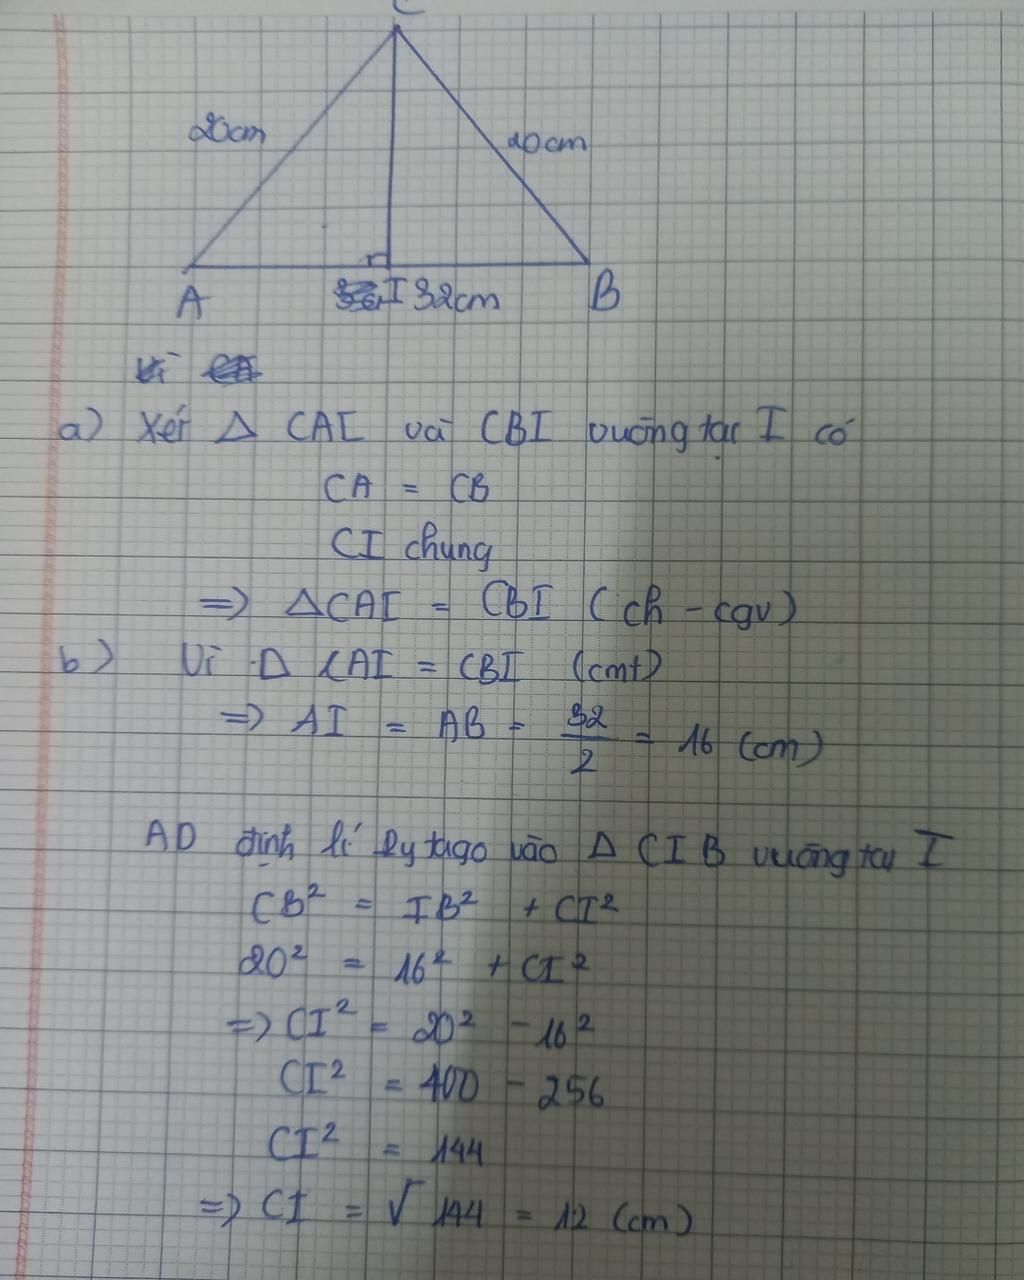 C
20cm
20cm
A
I 32cm
B
Vì CA
a) Xét Δ CAI và CBI vuông tại I có
CA = CB
CI chung
=> ΔCAI = CBI (ch - cgv)
b) Vì Δ CAI = CBI (cmt)
=> AI = AB = 32/2 = 16 (cm)
AD định lí Pytago vào Δ CIB vuông tại I
CB² = IB² + CI²
20² = 16² + CI²
=> CI² = 20² - 16²
CI² = 400 - 256
CI² = 144
=> CI = √144 = 12 (cm)